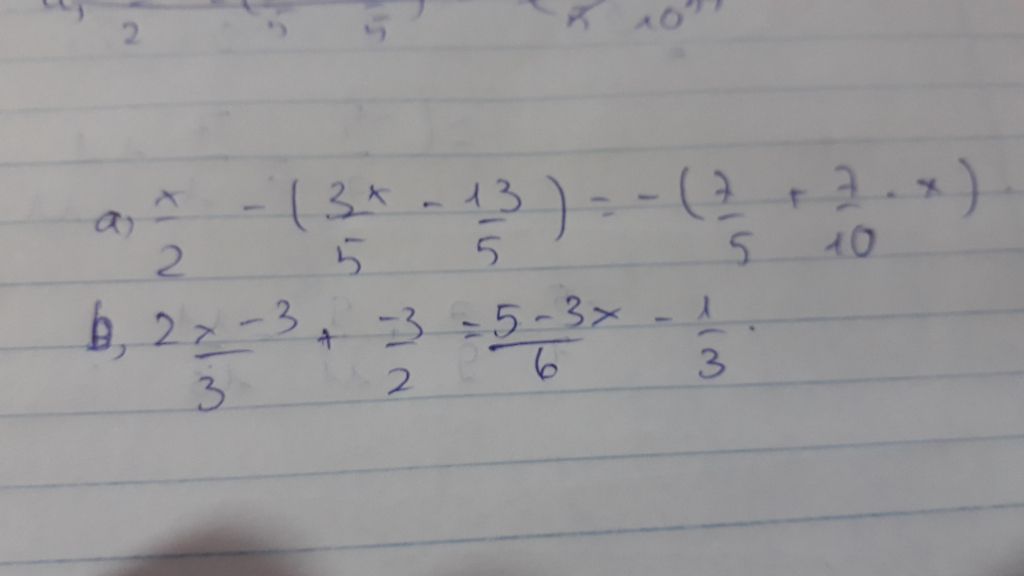 a, x/2 - (3x/5 - 13/5) = -(7/5 + 7/10 . x)
b, 2x-3/3 + -3/2 = 5-3x/6 - 1/3.